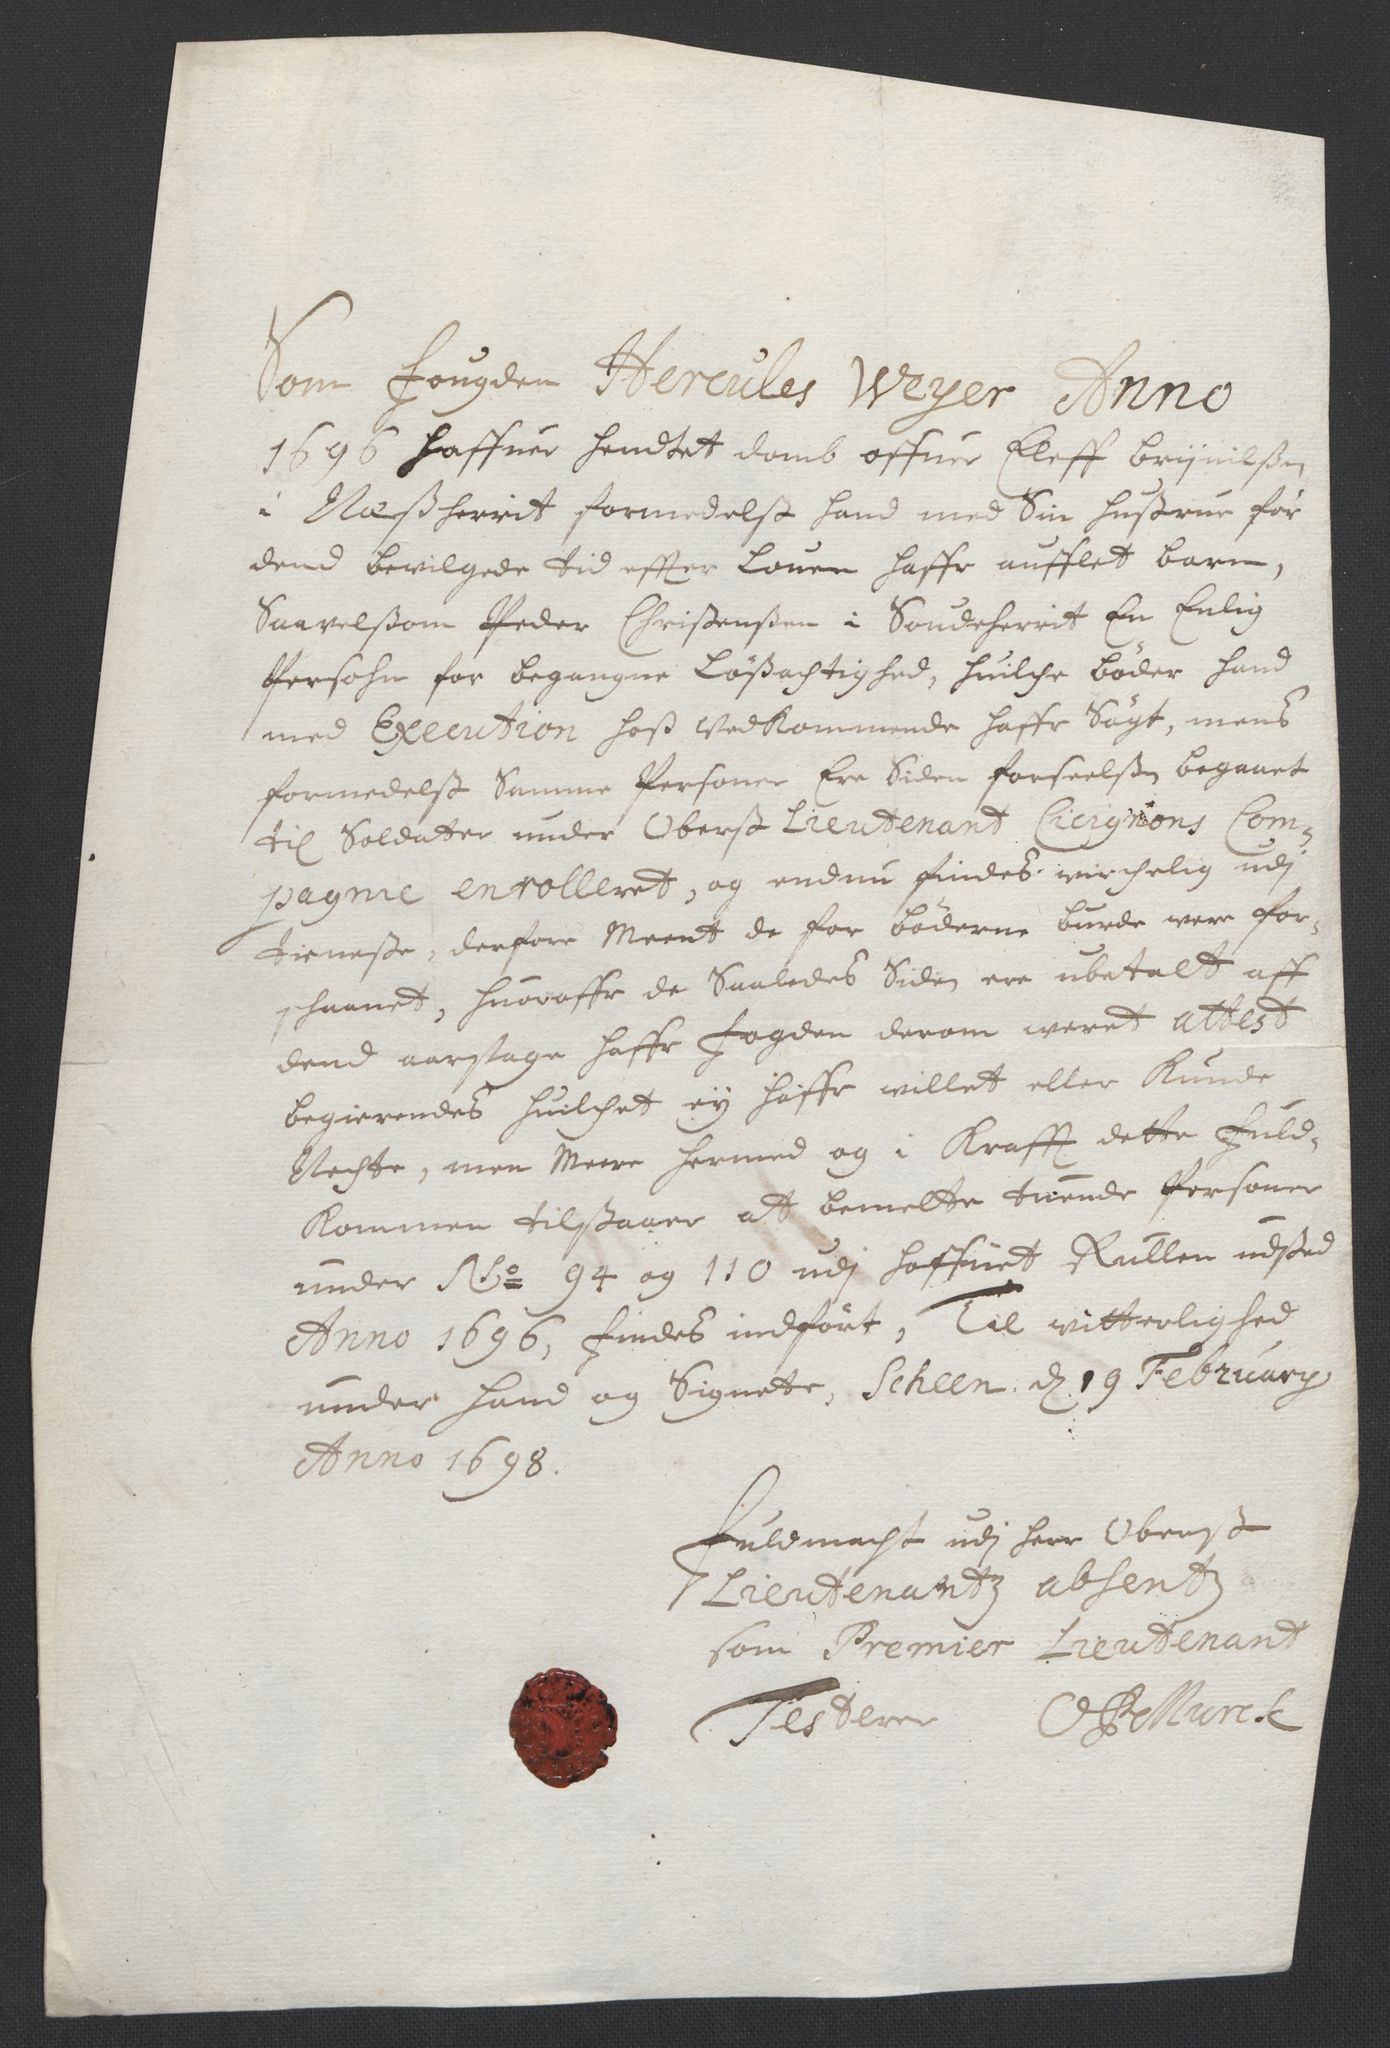 Som Fougden Hercules Weyer Anno
1696 haffuer hendtet domb offuer Eleff brijnilßn
i Næßherrit formedelst hand med Sin hustrue før
dend bevilgede tid effter Louen haffr aufflet barn,
Saavelsom Peder Christensen i Soudeherrit En Enlig
Persohn for begangne Løßachtighed, huilche bøder hand
med Execution hoß Vedkommende haffr Søgt, mens
formedelst Samme Personer Ere Siden forseelsn begaaet
til Soldatter under Oberst Lieutenant Cicignons Com-
pagnie enrolleret, og endnu findes virchelig udj
tieneste, derfore Meent de for bøderne burde vere for-
schaanet, huoraffr de Saaledes Siden ere ubetalt aff
dend aarsage haffr Fogden derom weret attest
begierendes huilchet ey haffr willet eller Kunde
Nechte, men Meere hermed og i Krafft dette Fuld-
kommen tilstaaer att bemelte tuende Personer
under No 94 og 110 udj hoffuet Rullen udsted
Anno 1696, findes indført, Til vitterlighed
under Hand og Signete, Scheen d 19 February
Anno 1698.
Fuldmacht udj herr Oberst
Lieutenantz absentz
som Premier Lieutenant
Testerer